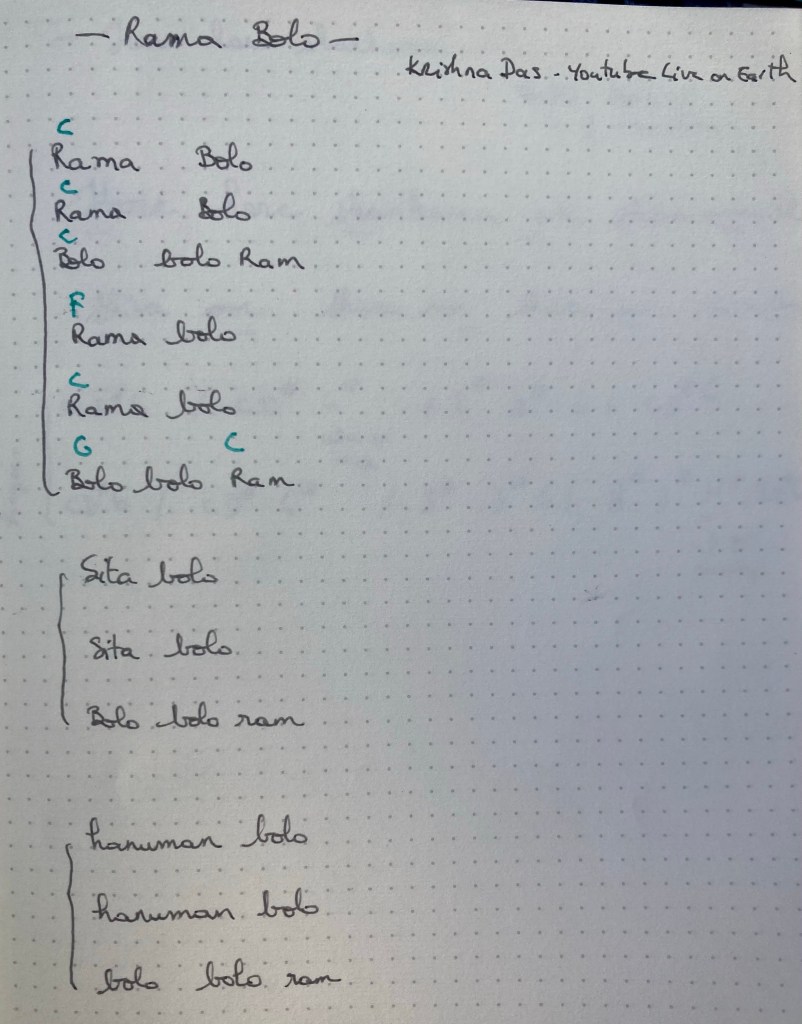 — Rama Bolo —
Krishna Das - Youtube Live on Earth
C
Rama Bolo
C
Rama Bolo
C
Bolo bolo Ram
F
Rama bolo
C
Rama bolo
G C
Bolo bolo Ram
Sita bolo
Sita bolo
Bolo bolo ram
hanuman bolo
hanuman bolo
bolo bolo ram